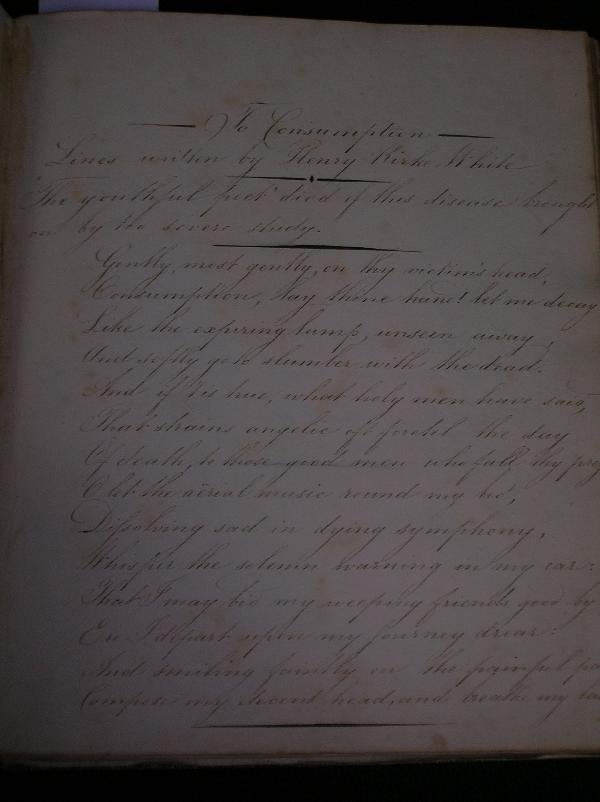 To Consumption
Lines written by Henry Kirke White
The youthful poet died of this disease brought
on by too severe study.
Gently, most gently, on thy victim's head,
Consumption, lay thine hand! let me decay
Like the expiring lamp, unseen away,
And softly go to slumber with the dead.
And if 'tis true, what holy men have said,
That strains angelic oft foretel the day
Of death, to those good men who fall thy prey
O let the aërial music round my bed,
Dissolving sad in dying symphony,
Whisper the solemn warning in my ear:
That I may bid my weeping friends good by
Ere I depart upon my journey drear:
And smiling faintly on the painful pa
Compose my decent head, and breathe my la